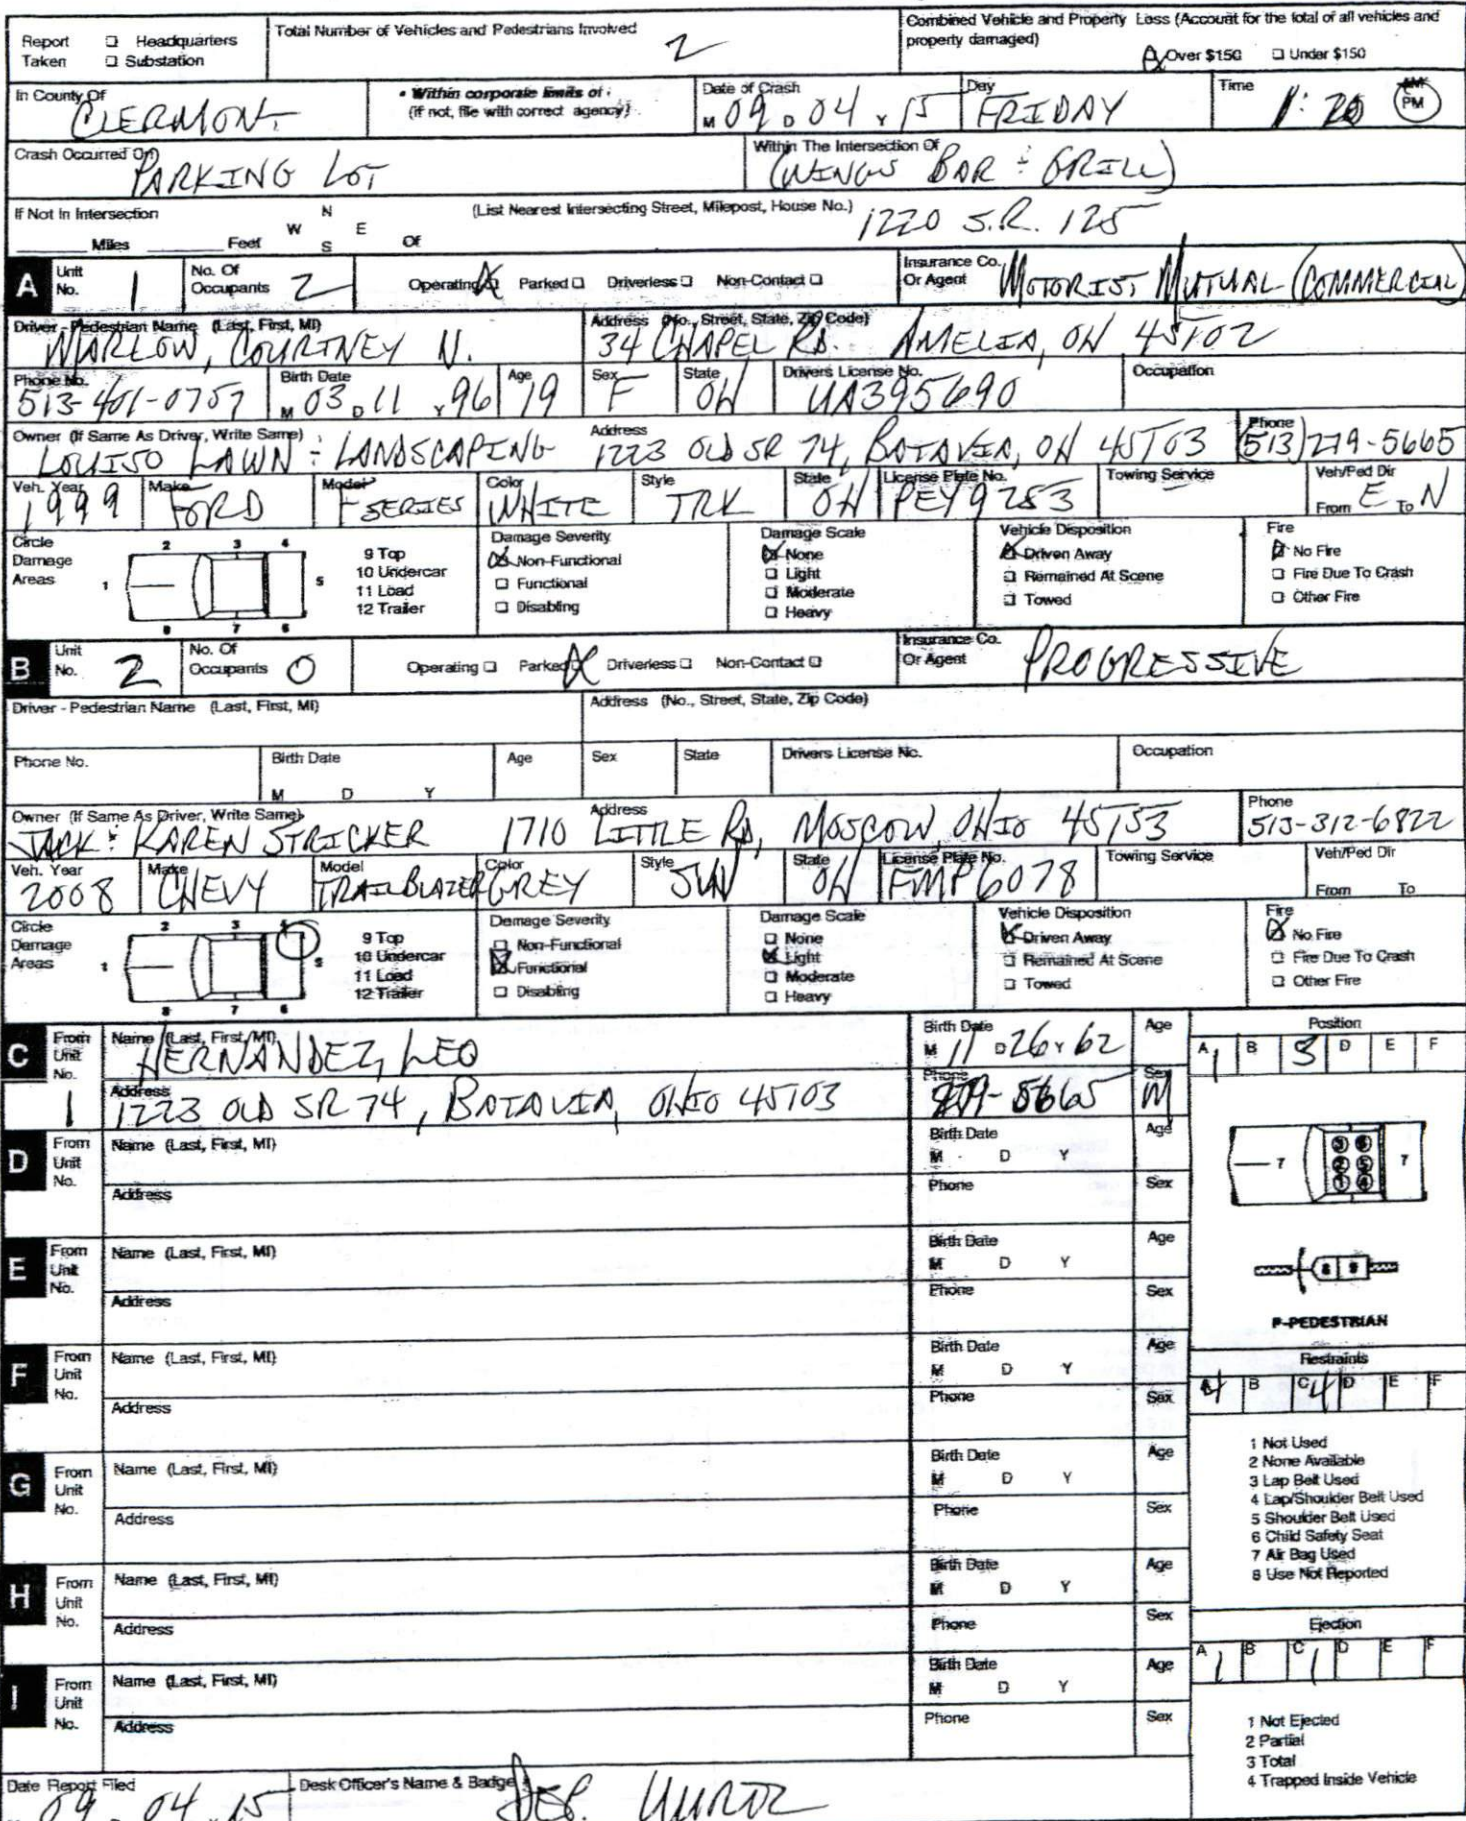 Report Taken ❑ Headquarters ❑ Substation
Total Number of Vehicles and Pedestrians Involved 2
Combined Vehicle and Property Loss (Account for the total of all vehicles and property damaged)
Over $150 ❑ Under $150
In County Of CLERMONT
• Within corporate limits of :
(if not, file with correct agency)
Date of Crash M 09 D 04 Y 15
Day FRIDAY
Time AM PM
Crash Occurred On PARKING LOT
Within The Intersection Of (WINGS BAR & GRILL)
If Not In Intersection
Miles Feet N W E S Of
(List Nearest Intersecting Street, Milepost, House No.) 1220 S.R. 125
A Unit No. 1 No. Of Occupants 2 Operating Parked ❑ Driverless ❑ Non-Contact ❑
Insurance Co. Or Agent MOTORIST MUTUAL (COMMERCIAL)
Driver - Pedestrian Name (Last, First, MI) MARLOW, COURTNEY N.
Address (No., Street, State, Zip Code) 34 CHAPEL RD. AMELIA, OH 45102
Phone No. 513-401-0757 Birth Date M 03 D 11 Y 96 Age 19 Sex F State OH Drivers License No. UA395690 Occupation
Owner (If Same As Driver, Write Same) LOUISO LAWN & LANDSCAPING Address 1223 OLD SR 74, BATAVIA, OH 45103 Phone (513) 279-5665
Veh. Year 1999 Make FORD Model F SERIES Color WHITE Style TRK State OH License Plate No. PEY9253 Towing Service Veh/Ped Dir From E To N
Circle Damage Areas 1 2 3 4 5 6 7 8
9 Top
10 Undercar
11 Load
12 Trailer
Damage Severity
Non-Functional
❑ Functional
❑ Disabling
Damage Scale
None
❑ Light
❑ Moderate
❑ Heavy
Vehicle Disposition
Driven Away
❑ Remained At Scene
❑ Towed
Fire
No Fire
❑ Fire Due To Crash
❑ Other Fire
B Unit No. 2 No. Of Occupants 0 Operating ❑ Parked Driverless ❑ Non-Contact ❑
Insurance Co. Or Agent PROGRESSIVE
Driver - Pedestrian Name (Last, First, MI) Address (No., Street, State, Zip Code)
Phone No. Birth Date M D Y Age Sex State Drivers License No. Occupation
Owner (If Same As Driver, Write Same) JACK & KAREN STRICKER Address 1710 LITTLE RD, MOSCOW, OHIO 45153 Phone 513-312-6822
Veh. Year 2008 Make CHEVY Model TRAILBLAZER Color GREY Style SUV State OH License Plate No. FMP6078 Towing Service Veh/Ped Dir From To
Circle Damage Areas 1 2 3 4 5 6 7 8
9 Top
10 Undercar
11 Load
12 Trailer
Damage Severity
❑ Non-Functional
Functional
❑ Disabling
Damage Scale
❑ None
Light
❑ Moderate
❑ Heavy
Vehicle Disposition
Driven Away
❑ Remained At Scene
❑ Towed
Fire
No Fire
❑ Fire Due To Crash
❑ Other Fire
C From Unit No. 1 Name (Last, First, MI) HERNANDEZ, LEO Birth Date M 11 D 26 Y 62 Age
Address 1223 OLD SR 74, BATAVIA, OHIO 45103 Phone 279-5665 Sex M
Position
A 1 B C 3 D E F
D From Unit No. Name (Last, First, MI) Birth Date M D Y Age
Address Phone Sex
7 3 6 2 5 1 4 7
E From Unit No. Name (Last, First, MI) Birth Date M D Y Age
Address Phone Sex
8 9
P-PEDESTRIAN
F From Unit No. Name (Last, First, MI) Birth Date M D Y Age
Address Phone Sex
Restraints
A 4 B C 4 D E F
G From Unit No. Name (Last, First, MI) Birth Date M D Y Age
Address Phone Sex
1 Not Used
2 None Available
3 Lap Belt Used
4 Lap/Shoulder Belt Used
5 Shoulder Belt Used
6 Child Safety Seat
7 Air Bag Used
8 Use Not Reported
H From Unit No. Name (Last, First, MI) Birth Date M D Y Age
Address Phone Sex
Ejection
A 1 B C 1 D E F
I From Unit No. Name (Last, First, MI) Birth Date M D Y Age
Address Phone Sex
1 Not Ejected
2 Partial
3 Total
4 Trapped Inside Vehicle
Date Report Filed 09 04 15
Desk Officer's Name & Badge DEP.